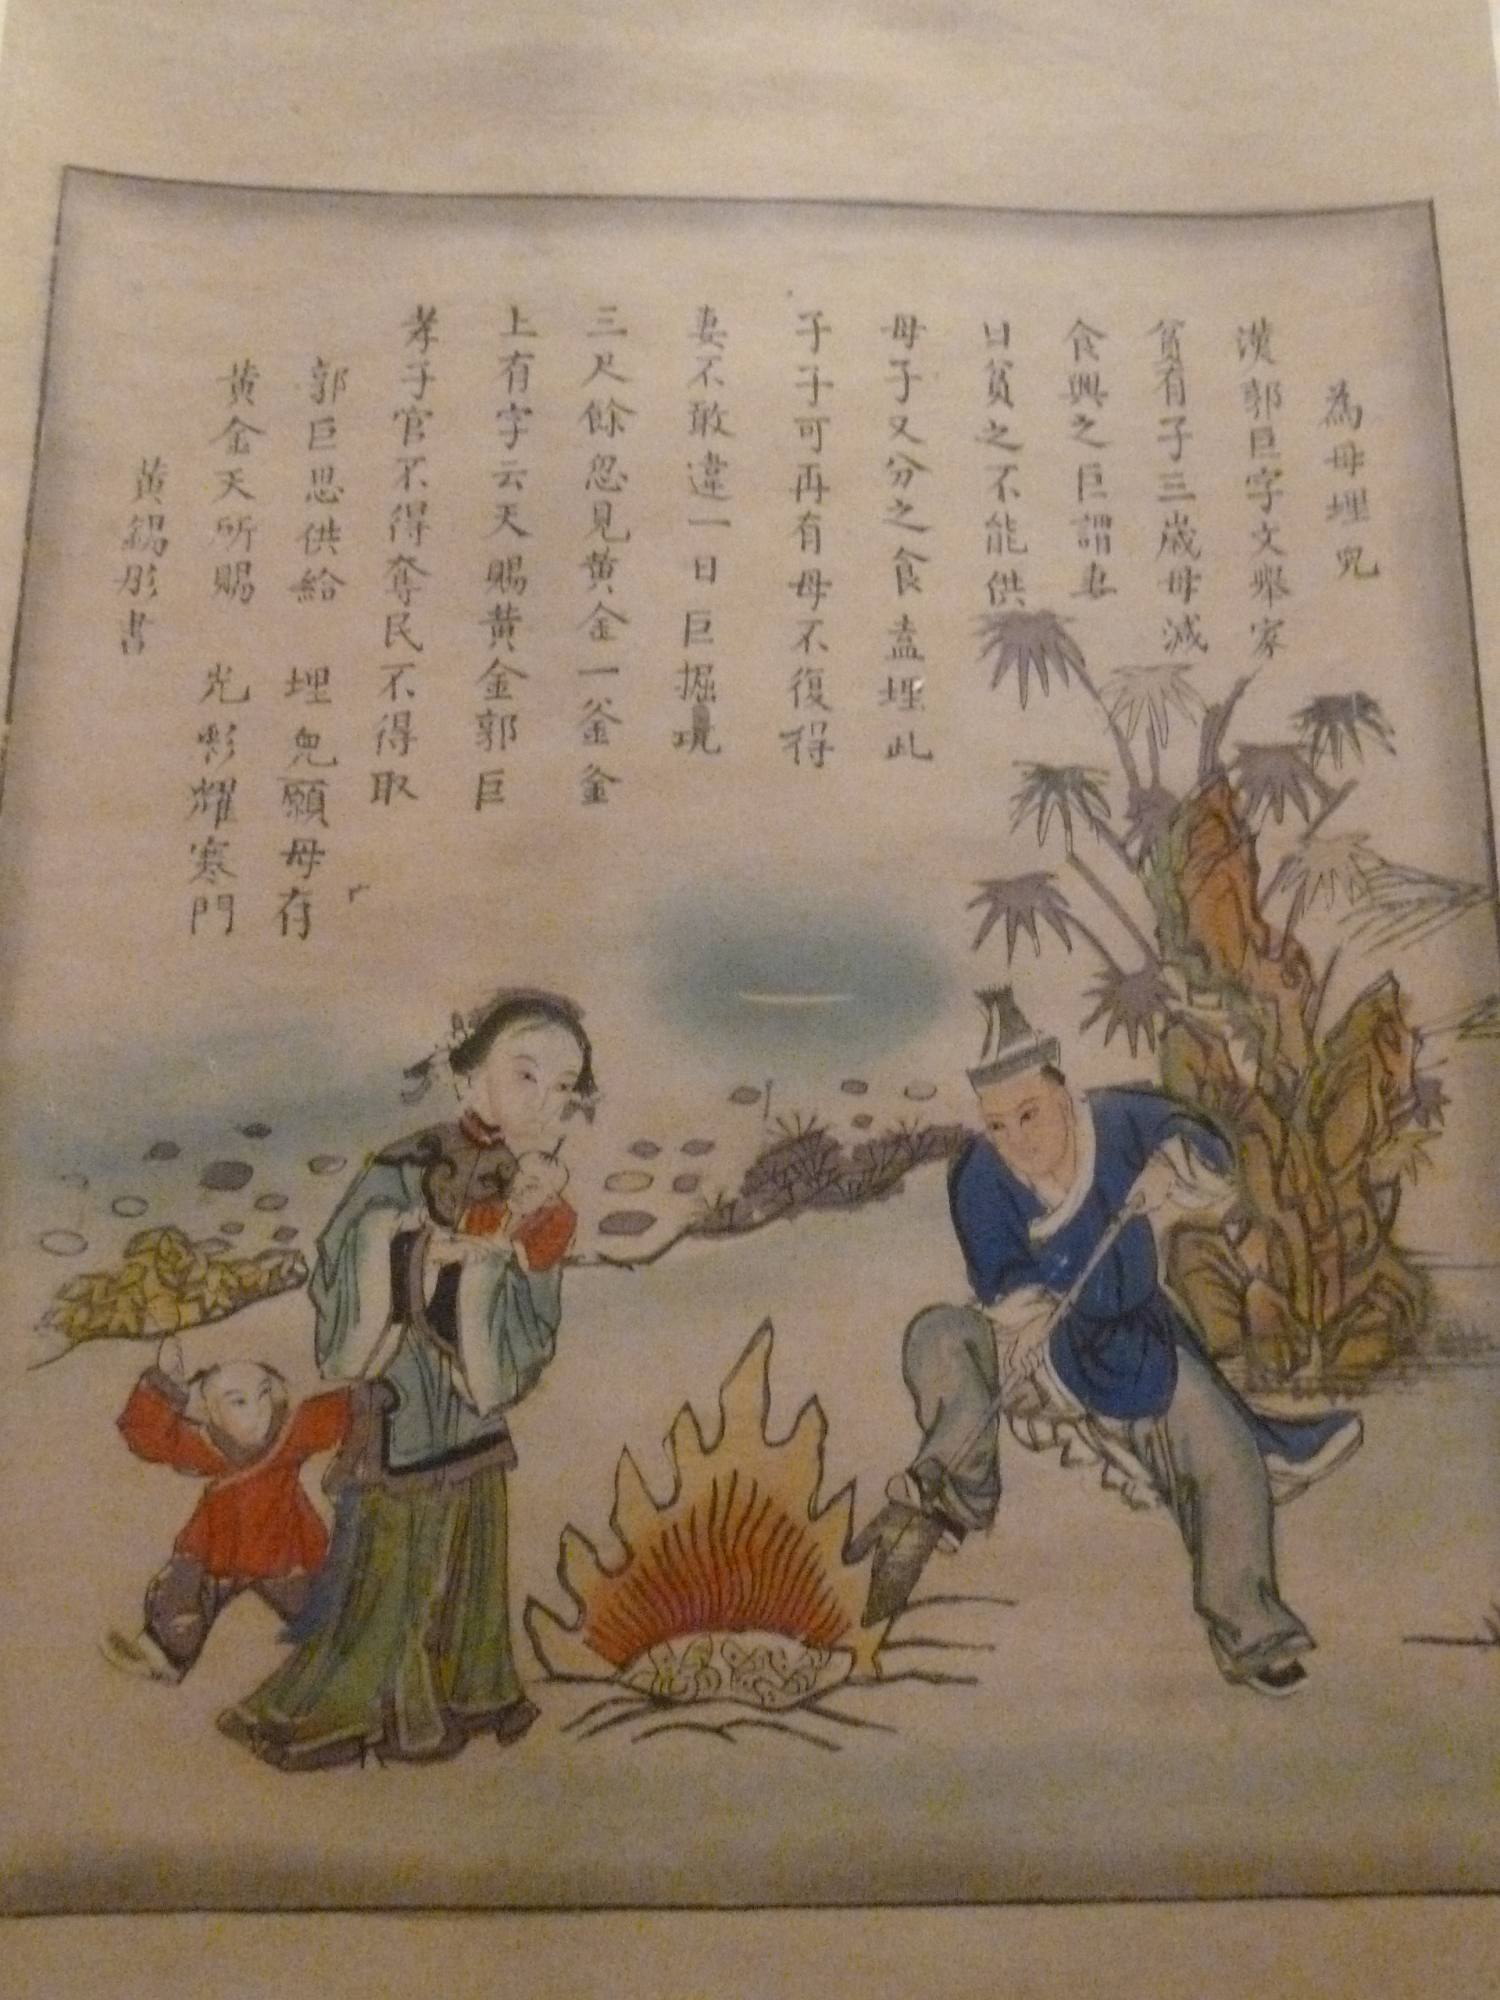 為母埋兒
漢郭巨字文舉家
貧有子三歲母減
食與之巨謂妻
曰貧乏不能供
母子又分之食盍埋此
子子可再有母不復得
妻不敢違一日巨掘坑
三尺餘忽見黃金一釜釜
上有字云天賜黃金郭巨
孝子官不得奪民不得取
郭巨思供給 埋兒願母存
黃金天所賜 光彩耀寒門
黃錫彤書